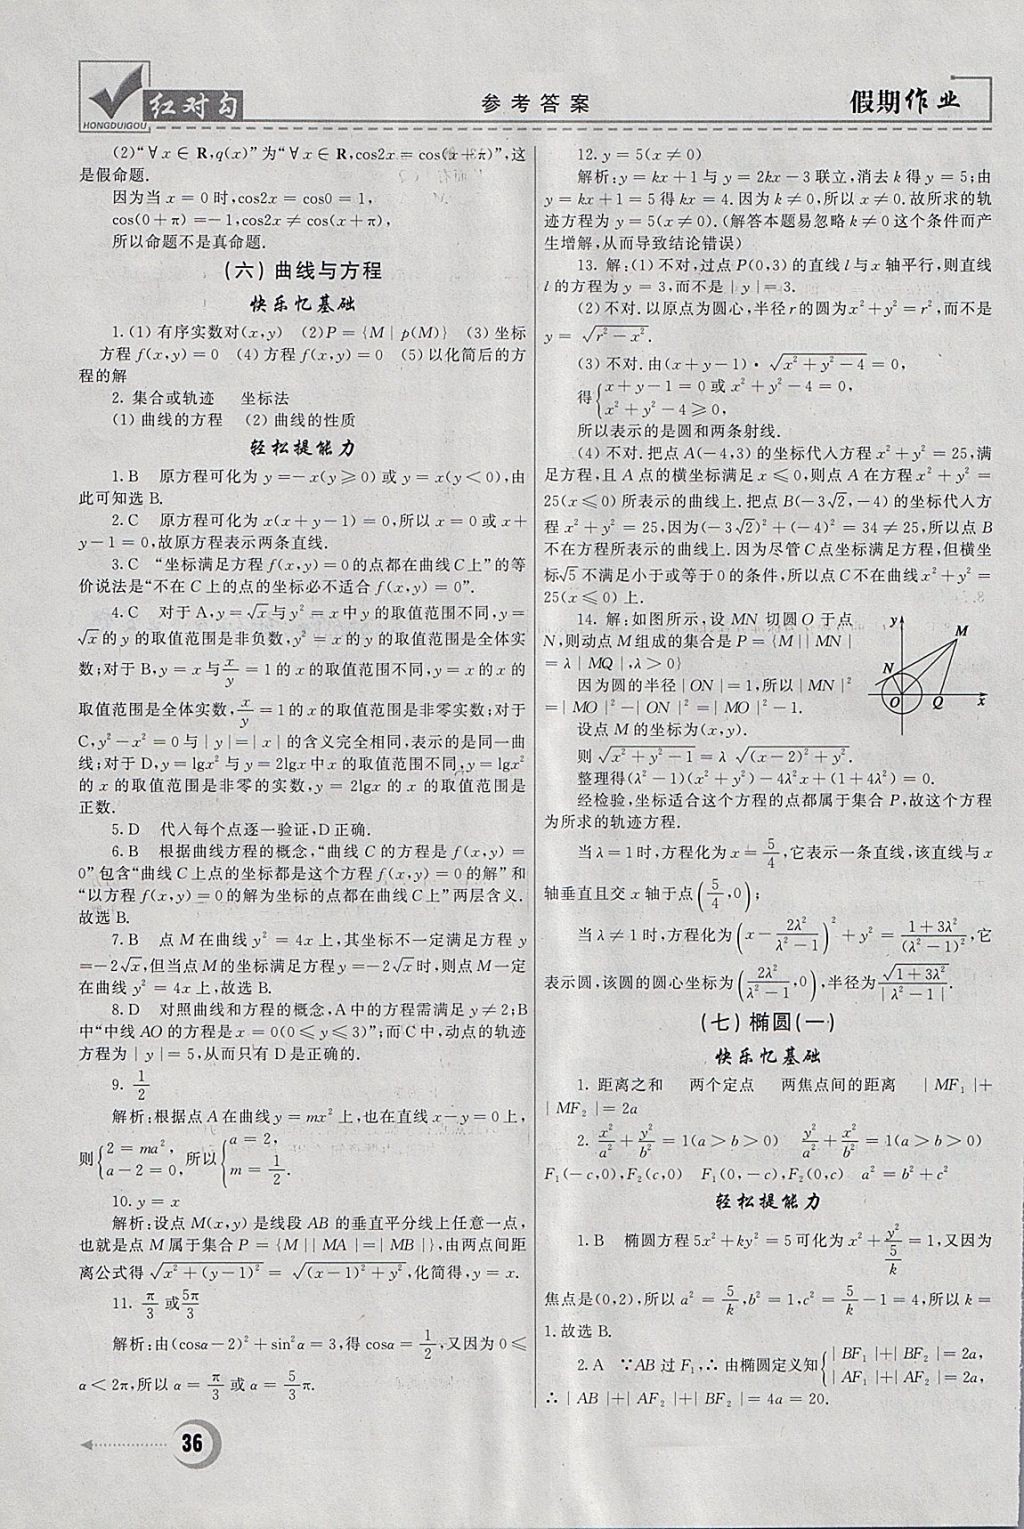 红对勾
HONGDUIGOU
参考答案
假期作业
(2)“∀x∈R,q(x)”为“∀x∈R,cos2x=cos(x+π)”,这
是假命题.
因为当x=0时,cos2x=cos0=1,
cos(0+π)=-1,cos2x≠cos(x+π),
所以命题不是真命题.
(六)曲线与方程
快乐忆基础
1.(1)有序实数对(x,y) (2)P={M|p(M)} (3)坐标
方程f(x,y)=0 (4)方程f(x,y)=0 (5)以化简后的方
程的解
2. 集合或轨迹 坐标法
(1)曲线的方程 (2)曲线的性质
轻松提能力
1.B 原方程可化为y=-x(y≥0)或y=x(y<0),由
此可知选B.
2.C 原方程可化为x(x+y-1)=0,所以x=0或x+
y-1=0,故原方程表示两条直线.
3.C “坐标满足方程f(x,y)=0的点都在曲线C上”的等
价说法是“不在C上的点的坐标必不适合f(x,y)=0”.
4.C 对于A,y=√x与y²=x中y的取值范围不同,y=
√x的y的取值范围是非负数,y²=x的y的取值范围是全体实
数;对于B,y=x与x/y=1的x的取值范围不同,y=x的x的
取值范围是全体实数,x/y=1的x的取值范围是非零实数;对于
C,y²-x²=0与|y|=|x|的含义完全相同,表示的是同一曲
线;对于D,y=lgx²与y=2lgx中x的取值范围不同,y=lgx²
的x的取值范围是非零的实数,y=2lgx的x的取值范围是
正数.
5.D 代入每个点逐一验证,D正确.
6.B 根据曲线方程的概念,“曲线C的方程是f(x,y)=
0”包含“曲线C上点的坐标都是这个方程f(x,y)=0的解”和
“以方程f(x,y)=0的解为坐标的点都在曲线C上”两层含义.
故选B.
7.B 点M在曲线y²=4x上,其坐标不一定满足方程y
=-2√x,但当点M的坐标满足方程y=-2√x时,则点M一定
在曲线y²=4x上,故选B.
8.D 对照曲线和方程的概念,A中的方程需满足y≠2;B
中“中线AO的方程是x=0(0≤y≤3)”;而C中,动点的轨迹
方程为|y|=5,从而只有D是正确的.
9. 1/2
解析:根据点A在曲线y=mx²上,也在直线x-y=0上,
则{2=ma², a-2=0, 所以{a=2, m=1/2.
10.y=x
解析:设点M(x,y)是线段AB的垂直平分线上任意一点,
也就是点M属于集合P={M||MA|=|MB|},由两点间距
离公式得√(x²+(y-1)²)=√((x-1)²+y²),化简得,y=x.
11. π/3或5π/3
解析:由(cosα-2)²+sin²α=3,得cosα=1/2,又因为0≤
α<2π,所以α=π/3或α=5/3π.
36
12.y=5(x≠0)
解析:y=kx+1与y=2kx-3联立,消去k得y=5;由
y=kx+1=5得kx=4.因为k≠0,所以x≠0.故所求的轨
迹方程为y=5(x≠0).(解答本题易忽略k≠0这个条件而产
生增解,从而导致结论错误)
13. 解:(1)不对,过点P(0,3)的直线l与x轴平行,则直线
l的方程为y=3,而不是|y|=3.
(2)不对.以原点为圆心,半径r的圆为x²+y²=r²,而不是
y=√(r²-x²).
(3)不对.由(x+y-1)·√(x²+y²-4)=0,
得{x+y-1=0或x²+y²-4=0, x²+y²-4≥0,
所以表示的是圆和两条射线.
(4)不对.把点A(-4,3)的坐标代入方程x²+y²=25,满
足方程,且A点的横坐标满足x≤0,则点A在方程x²+y²=
25(x≤0)所表示的曲线上.把点B(-3√2,-4)的坐标代入方
程x²+y²=25,因为(-3√2)²+(-4)²=34≠25,所以点B
不在方程所表示的曲线上.因为尽管C点坐标满足方程,但横坐
标√5不满足小于或等于0的条件,所以点C不在曲线x²+y²=
25(x≤0)上.
14. 解:如图所示,设MN切圆O于点
N,则动点M组成的集合是P={M||MN|
=λ|MQ|,λ>0}
因为圆的半径|ON|=1,所以|MN|²
=|MO|²-|ON|²=|MO|²-1.
设点M的坐标为(x,y).
则√(x²+y²-1)=λ√((x-2)²+y²).
整理得(λ²-1)(x²+y²)-4λ²x+(1+4λ²)=0.
y
M
N
O
Q
x
经检验,坐标适合这个方程的点都属于集合P,故这个方程
为所求的轨迹方程.
当λ=1时,方程化为x=5/4,它表示一条直线,该直线与x
轴垂直且交x轴于点(5/4,0);
当λ≠1时,方程化为(x-2λ²/(λ²-1))²+y²=(1+3λ²)/(λ²-1)²,它
表示圆,该圆的圆心坐标为(2λ²/(λ²-1),0),半径为√(1+3λ²)/|λ²-1|.
(七)椭圆(一)
快乐忆基础
1. 距离之和 两个定点 两焦点间的距离 |MF₁|+
|MF₂|=2a
2. x²/a²+y²/b²=1(a>b>0) y²/a²+x²/b²=1(a>b>0)
F₁(-c,0),F₂(c,0) F₁(0,-c),F₂(0,c) a²=b²+c²
轻松提能力
1.B 椭圆方程5x²+ky²=5可化为x²+y²/(5/k)=1,又因为
焦点是(0,2),所以a²=5/k,b²=1,c²=5/k-1=4,所以k=
1.故选B.
2.A ∵AB过F₁,∴由椭圆定义知{|BF₁|+|BF₂|=2a, |AF₁|+|AF₂|=2a,
∴|AB|+|AF₂|+|BF₂|=4a=20.